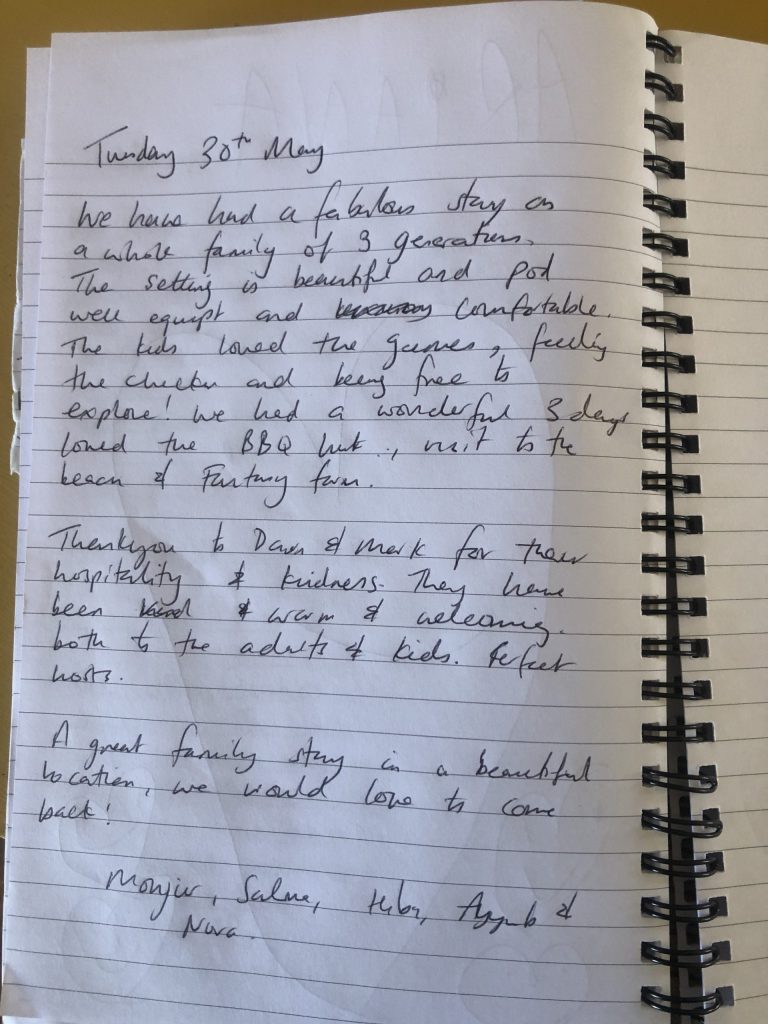 Tuesday 30th May
We have had a fabulous stay as
a whole family of 3 generations.
The setting is beautiful and pod
well equipt and comfortable.
The kids loved the games, feeding
the chicken and being free to
explore! We had a wonderful 3 days
loved the BBQ hut., visit to the
beach & Fantasy farm.
Thankyou to Dawn & Mark for their
hospitality & kindness. They have
been & warm & welcoming.
both to the adults & kids. Perfect
hosts.
A great family stay in a beautiful
location, we would love to come
back!
Salma, Hiba, Ayyub &
Nura.